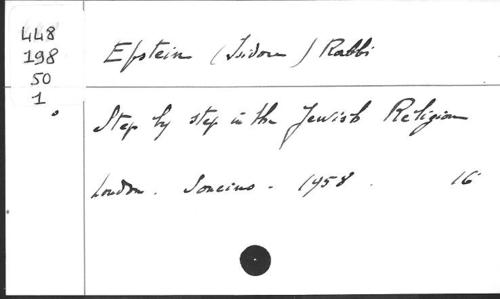 448
198
50
1
Epstein (Isidore) Rabbi
Step by step in the Jewish Religion
London. Soncino - 1958. 16